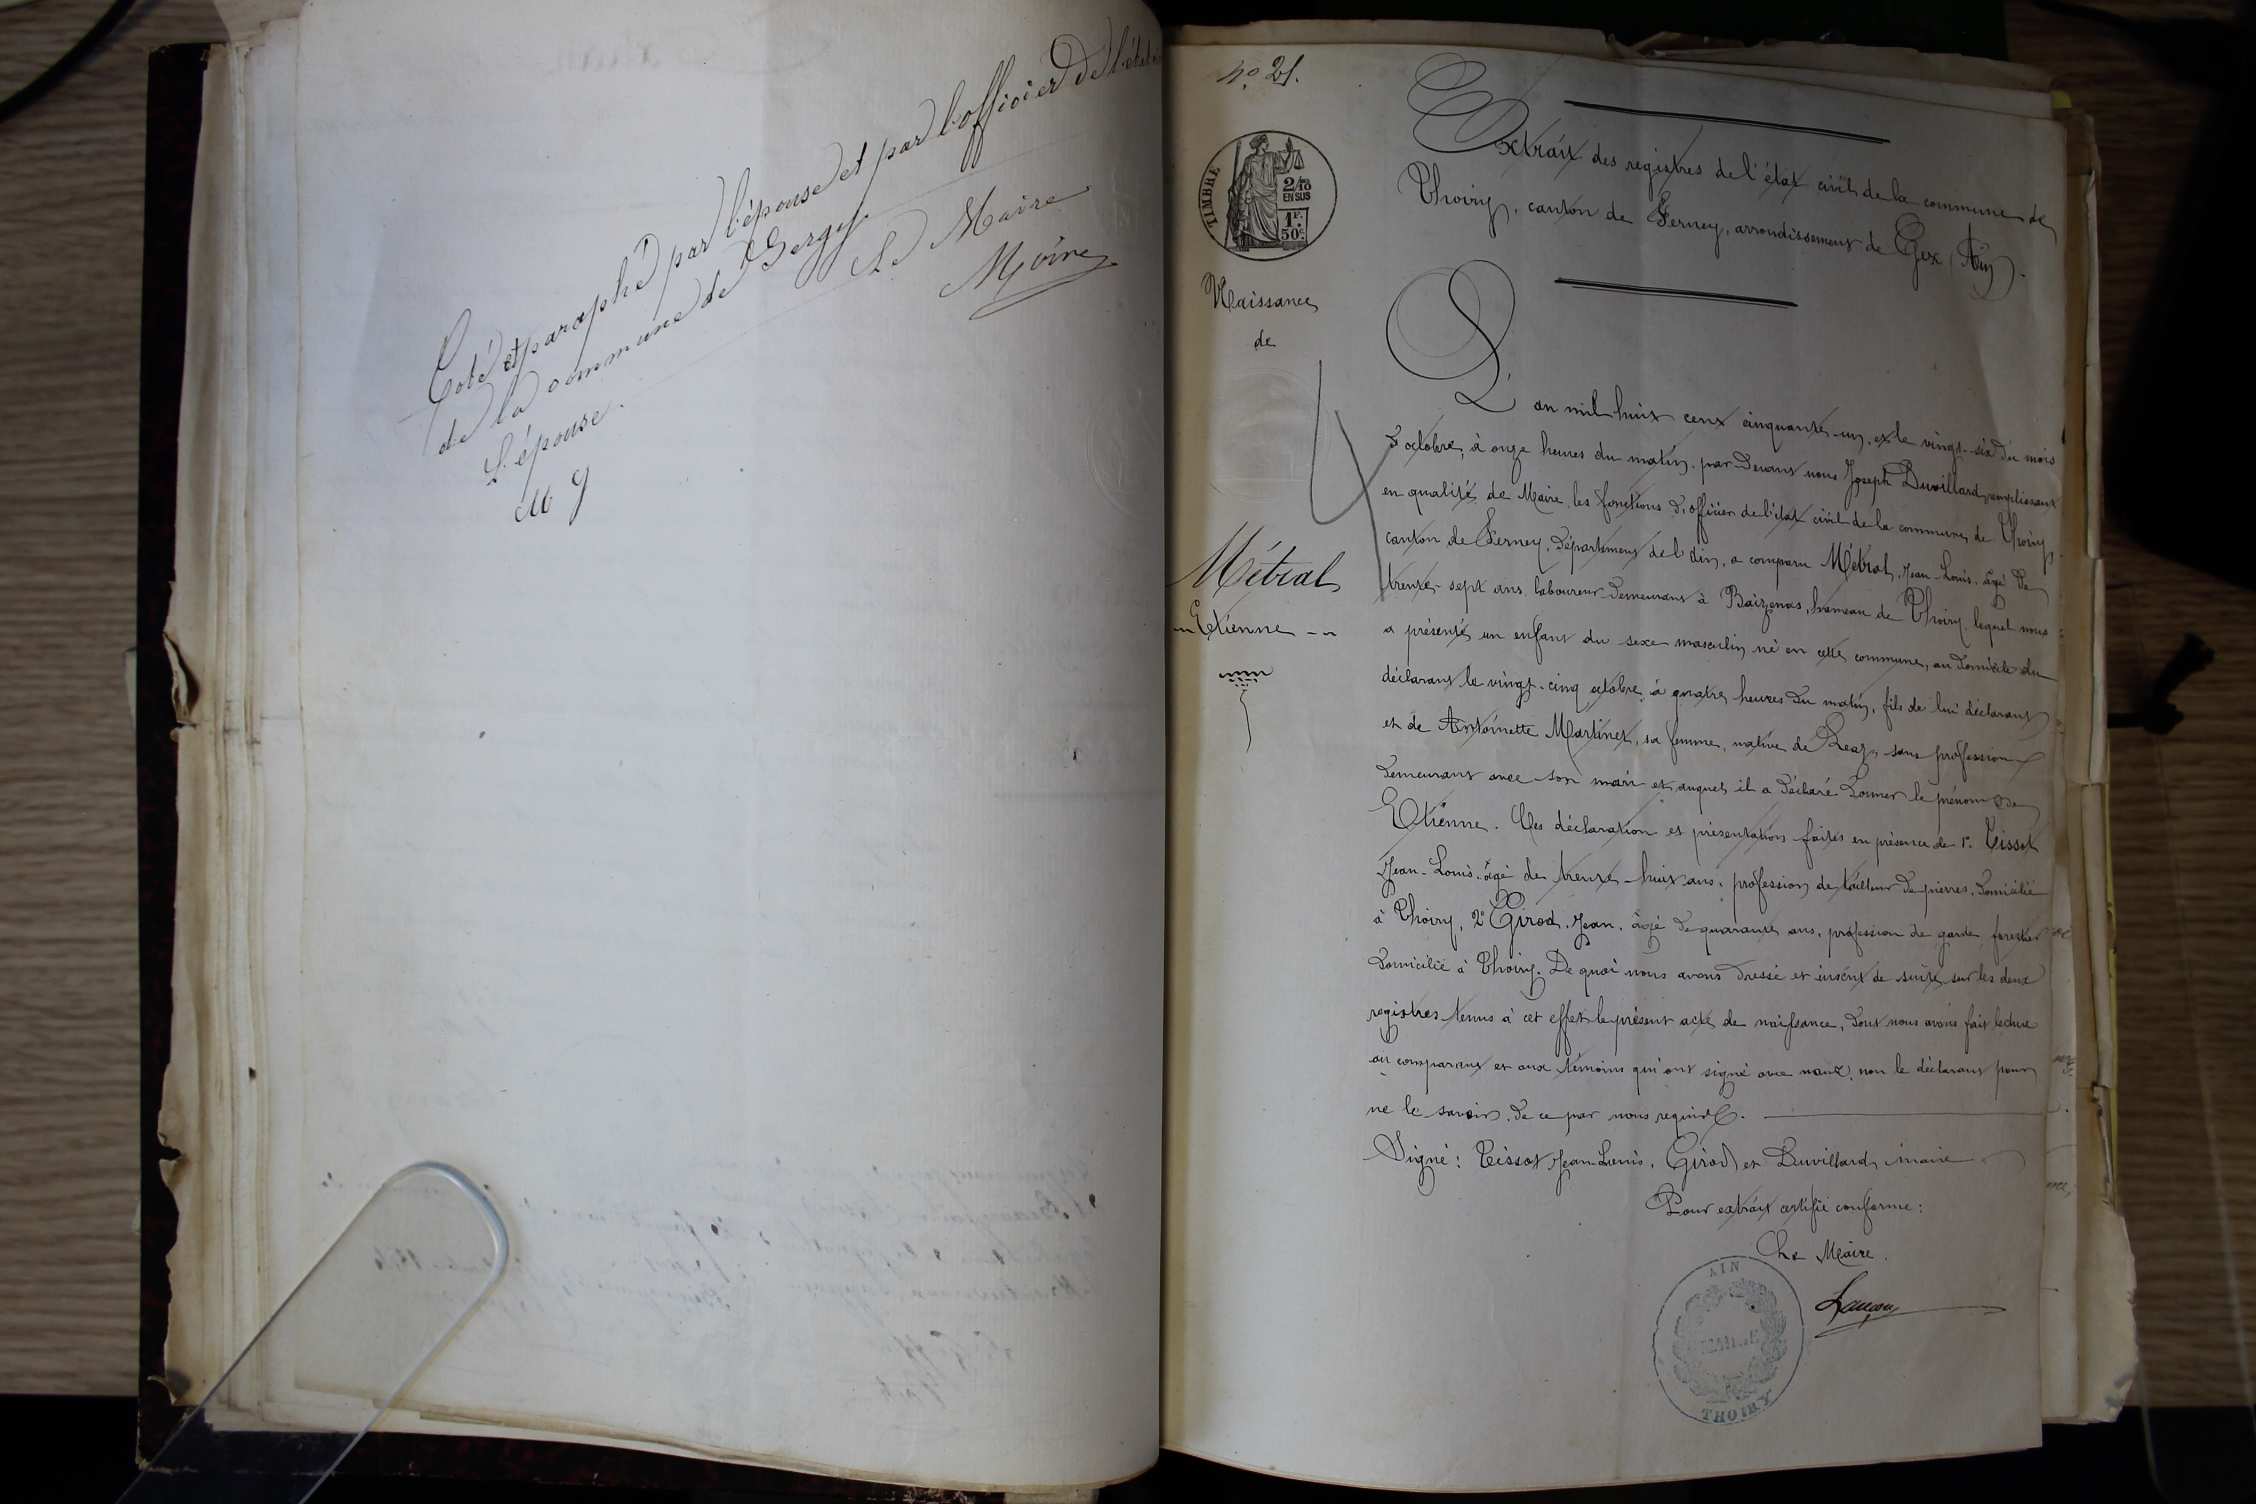 Coté et paraphé par l'épouse et par l'officier de l'état
de la commune de Sergy
L'épouse.
Le Maire
M G
Moine
N° 21.
TIMBRE
2/10
EN SUS
1F.
50c.
Naissance
de
Métral
Etienne
Extrait des registres de l'état civil de la commune de
Thoiry, canton de Ferney, arrondissement de Gex (Ain).
L'an mil huit cent cinquante-un, et le vingt-six du mois
d'octobre, à onze heures du matin, par devant nous Joseph Duvillard, remplissant
en qualité de Maire les fonctions d'officier de l'état civil de la commune de Thoiry,
canton de Ferney, département de l'Ain, a comparu Métral, Jean-Louis, âgé de
trente-sept ans, laboureur demeurant à Baizenas, hameau de Thoiry, lequel nous
a présenté un enfant du sexe masculin né en cette commune, au domicile du
déclarant le vingt-cinq octobre, à quatre heures du matin, fils de lui déclarant
et de Antoinette Martinet, sa femme, native de Léaz, sans profession
demeurant avec son mari et auquel il a déclaré donner le prénom de
Etienne. Les déclaration et présentation faites en présence de 1° Tissot
Jean-Louis, âgé de trente-huit ans, profession de tailleur de pierres, domicilié
à Thoiry, 2° Girod, Jean, âgé de quarante ans, profession de garde forestier
domicilié à Thoiry. De quoi nous avons dressé et inscrit de suite sur les deux
registres tenus à cet effet le présent acte de naissance, dont nous avons fait lecture
au comparant et aux témoins qui ont signé avec nous, non le déclarant pour
ne le savoir, de ce par nous requis.
Signé: Tissot Jean Louis, Girod et Duvillard, maire
Pour extrait certifié conforme:
Le Maire.
AIN
MAIRIE
THOIRY